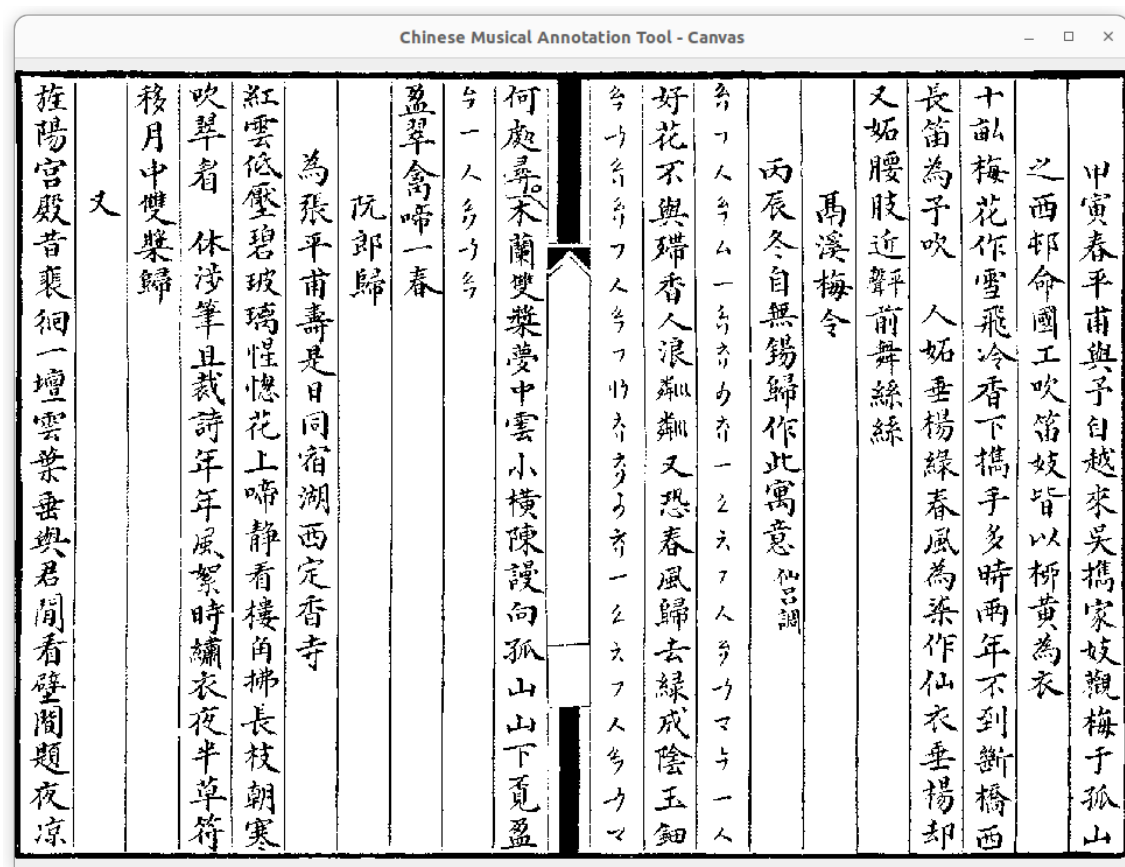 Chinese Musical Annotation Tool - Canvas
甲寅春平甫與予自越來吳擕家妓觀梅于孤山
之西邨命國工吹笛妓皆以柳黃為衣
十畝梅花作雪飛冷香下擕手多時兩年不到斷橋西
長笛為予吹　人妬垂楊綠春風為染作仙衣垂楊却
又妬腰肢近平聲前舞絲絲
鬲溪梅令
丙辰冬自無錫歸作此寓意 仙呂調
好花不與殢香人浪粼粼又恐春風歸去綠成陰玉鈿
何處尋。木蘭雙槳夢中雲小橫陳謾向孤山山下覓盈
盈翠禽啼一春
阮郎歸
為張平甫壽是日同宿湖西定香寺
紅雲低壓碧玻璃惺憁花上啼靜看樓角拂長枝朝寒
吹翠眉　休涉筆且裁詩年年風絮時繡衣夜半草符
移月中雙槳歸
又
旌陽宮殿昔裴徊一壇雲葉垂與君閒看壁間題夜凉